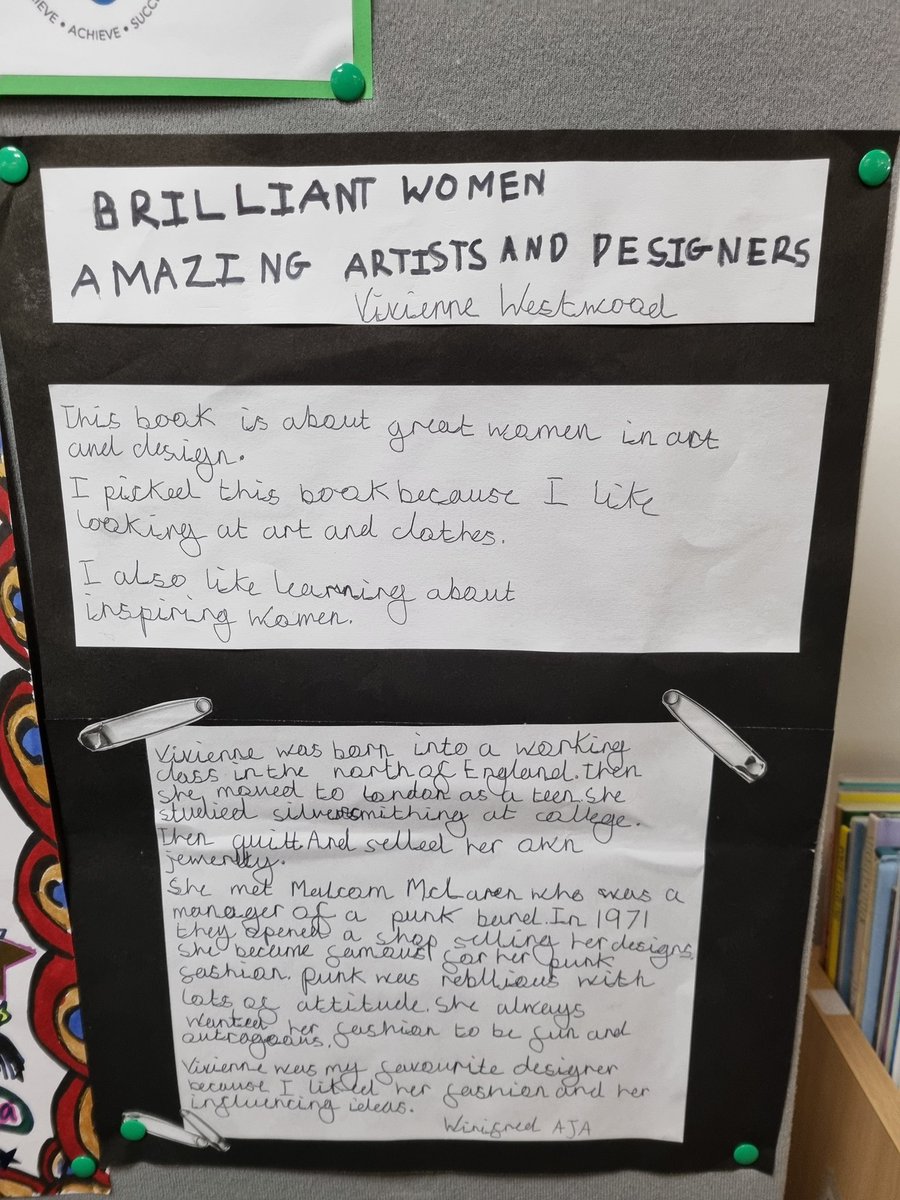 ACHIEVE • SUCC
BRILLIANT WOMEN
AMAZING ARTISTS AND DESIGNERS
Vivienne Westwood
This book is about great women in art
and design.
I picked this book because I like
looking at art and clothes.
I also like learning about
inspiring women.
Vivienne was born into a working
class in the north of England. Then
she moved to London as a teen. She
studied silversmithing at college.
Then quitt. And selled her own
jewerelly.
She met Malcom McLaren who was a
manager of a punk band. In 1971
they opened a shop selling her designs.
She became famous for her punk
fashion. Punk was rebllious with
lots of attitude. She always
wanted her fashion to be fun and
outrageous.
Vivienne was my favourite designer
because I liked her fashion and her
influencing ideas.
Winifred AJA